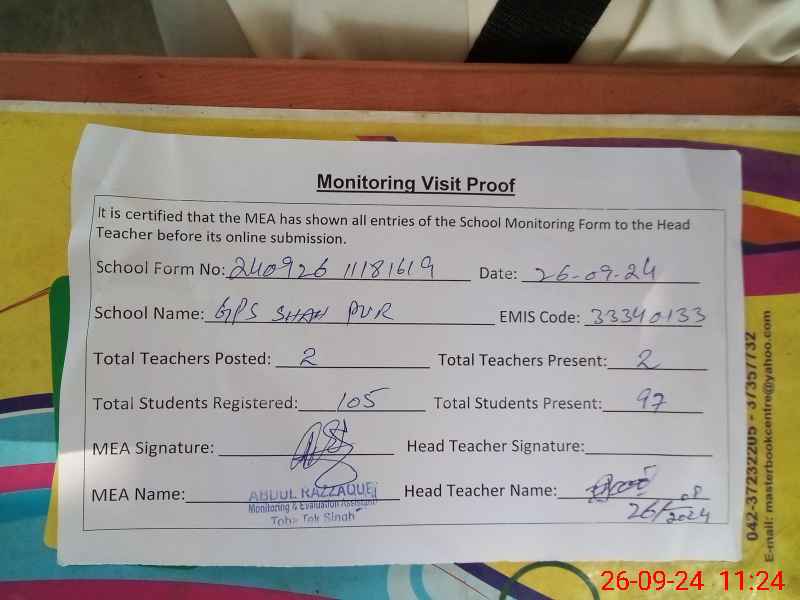 Monitoring Visit Proof
It is certified that the MEA has shown all entries of the School Monitoring Form to the Head
Teacher before its online submission.
School Form No: 240926 11181619 Date: 26-09-24
School Name: GPS SHAH PUR EMIS Code: 33340133
Total Teachers Posted: 2 Total Teachers Present: 2
Total Students Registered: 105 Total Students Present: 97
MEA Signature: Head Teacher Signature:
MEA Name: ABDUL RAZZAQUE Head Teacher Name:
Monitoring & Evaluation Assistant
Toba Tek Singh
26/08/2024
042-37232205 - 37357732
E-mail: masterbookcentre@yahoo.com
26-09-24 11:24